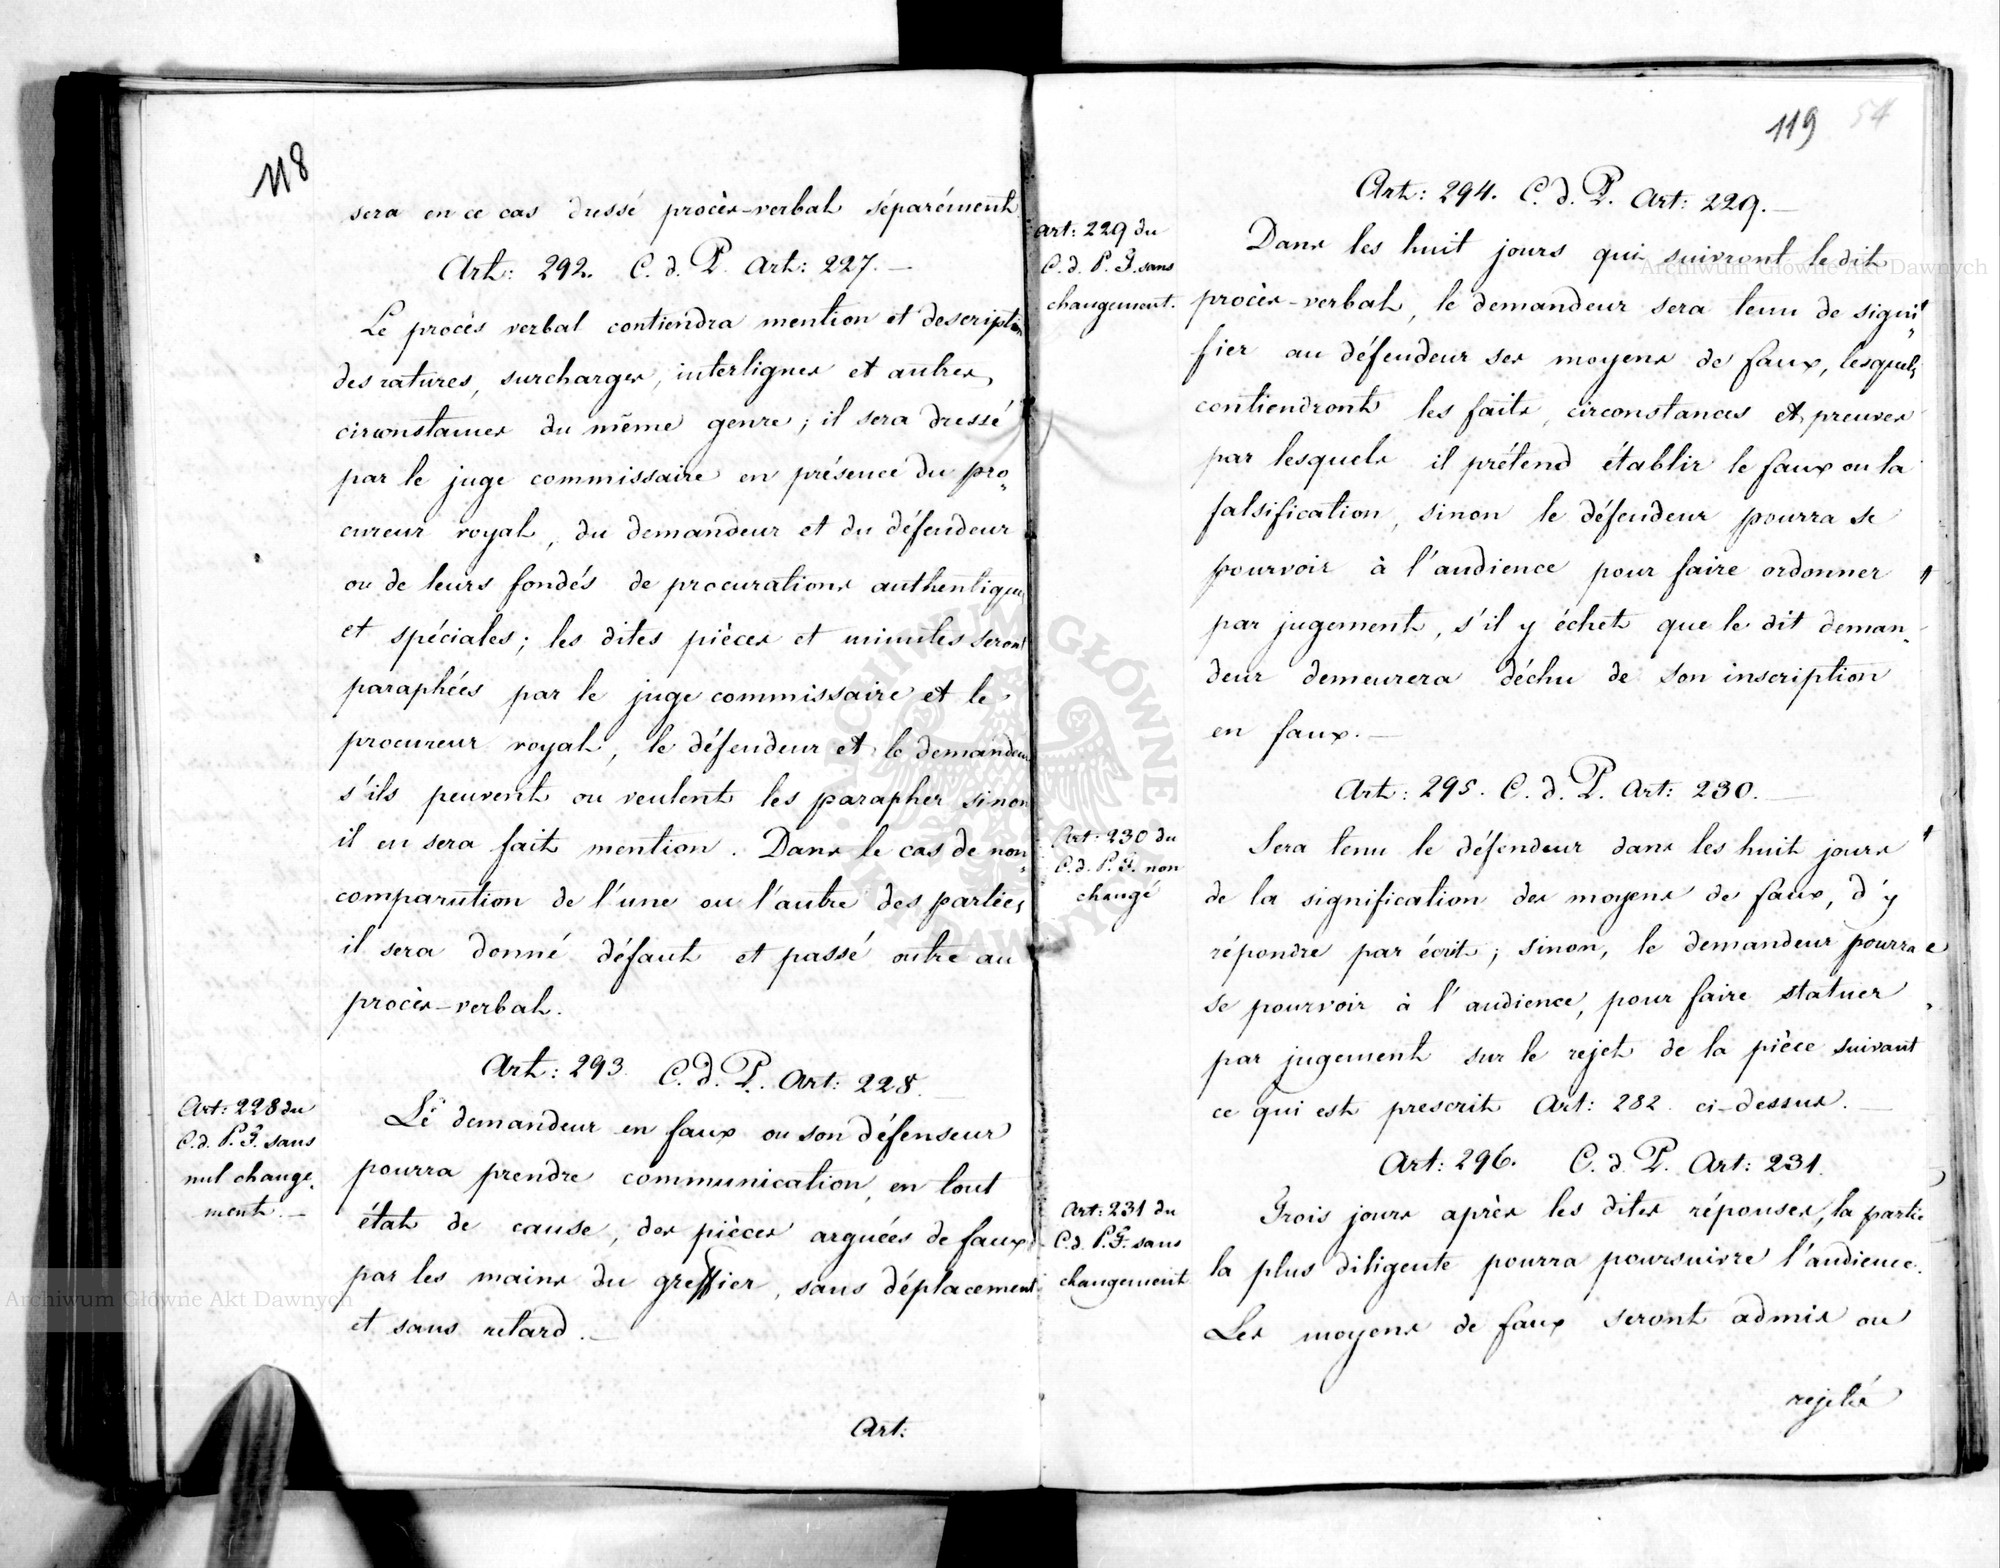 118
sera en ce cas dressé procès-verbal séparément
Art: 292. C. d. P. Art: 227. —
Le procès verbal contiendra mention et description
des ratures, surcharges, interlignes et autres
circonstances du même genre; il sera dressé
par le juge commissaire en présence du pro„
cureur royal, du demandeur et du défendeur
ou de leurs fondés de procurations authentiques
et spéciales; les dites pièces et minutes seront
paraphées par le juge commissaire et le
procureur royal, le défendeur et le demandeur
s'ils peuvent ou veulent les parapher sinon
il en sera fait mention. Dans le cas de non„
comparution de l'une ou l'autre des parties,
il sera donné défaut et passé outre au
procès-verbal.
Art: 293. C. d. P. Art: 228.
Art: 228 du
C. d. P. F. sans
nul change„
ment. —
Le demandeur en faux ou son défenseur
pourra prendre communication, en tout
état de cause, des pièces arguées de faux
par les mains du greffier, sans déplacement
et sans retard. —
Art:
119 54
Art: 294. C. d. P. Art: 229. —
Art: 229 du
C. d. P. F. sans
changement.
Dans les huit jours qui suivront le dit
procès-verbal, le demandeur sera tenu de signi„
fier au défendeur ses moyens de faux, lesquels
contiendront les faits, circonstances et preuves
par lesquels il prétend établir le faux ou la
falsification, sinon le défendeur pourra se
pourvoir à l'audience pour faire ordonner
par jugement, s'il y échet que le dit deman„
deur demeurera déchu de son inscription
en faux. —
Art: 295. C. d. P. Art: 230. —
Art: 230 du
C. d. P. F. non
changé
Sera tenu le défendeur dans les huit jours
de la signification des moyens de faux, d'y
répondre par écrit; sinon, le demandeur pourra
se pourvoir à l'audience, pour faire statuer
par jugement sur le rejet de la pièce suivant
ce qui est prescrit Art: 282. ci-dessus. —
Art: 296. C. d. P. Art: 231.
Art: 231 du
C. d. P. F. sans
changement
Trois jours après les dites réponses, la partie
la plus diligente pourra poursuivre l'audience.
Les moyens de faux seront admis ou
rejetés
Archiwum Główne Akt Dawnych
Archiwum Główne Akt Dawnych
ARCHIWUM GŁÓWNE AKT DAWNYCH